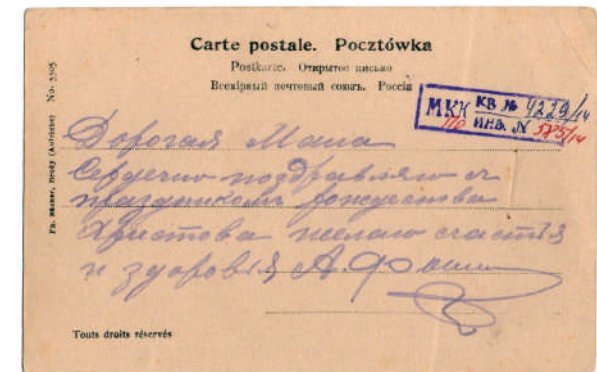 Carte postale. Pocztówka
Postkarte. Открытое письмо
Всемірный почтовый союзъ. Россія
No. 3505
МКН КВ № 4229/14
ИНВ. № 575/14
Дорогая Маша
Сердечно поздравляю с
праздникомъ рождества
Христова желаю счастія
и здоровія А.
Touts droits réservés